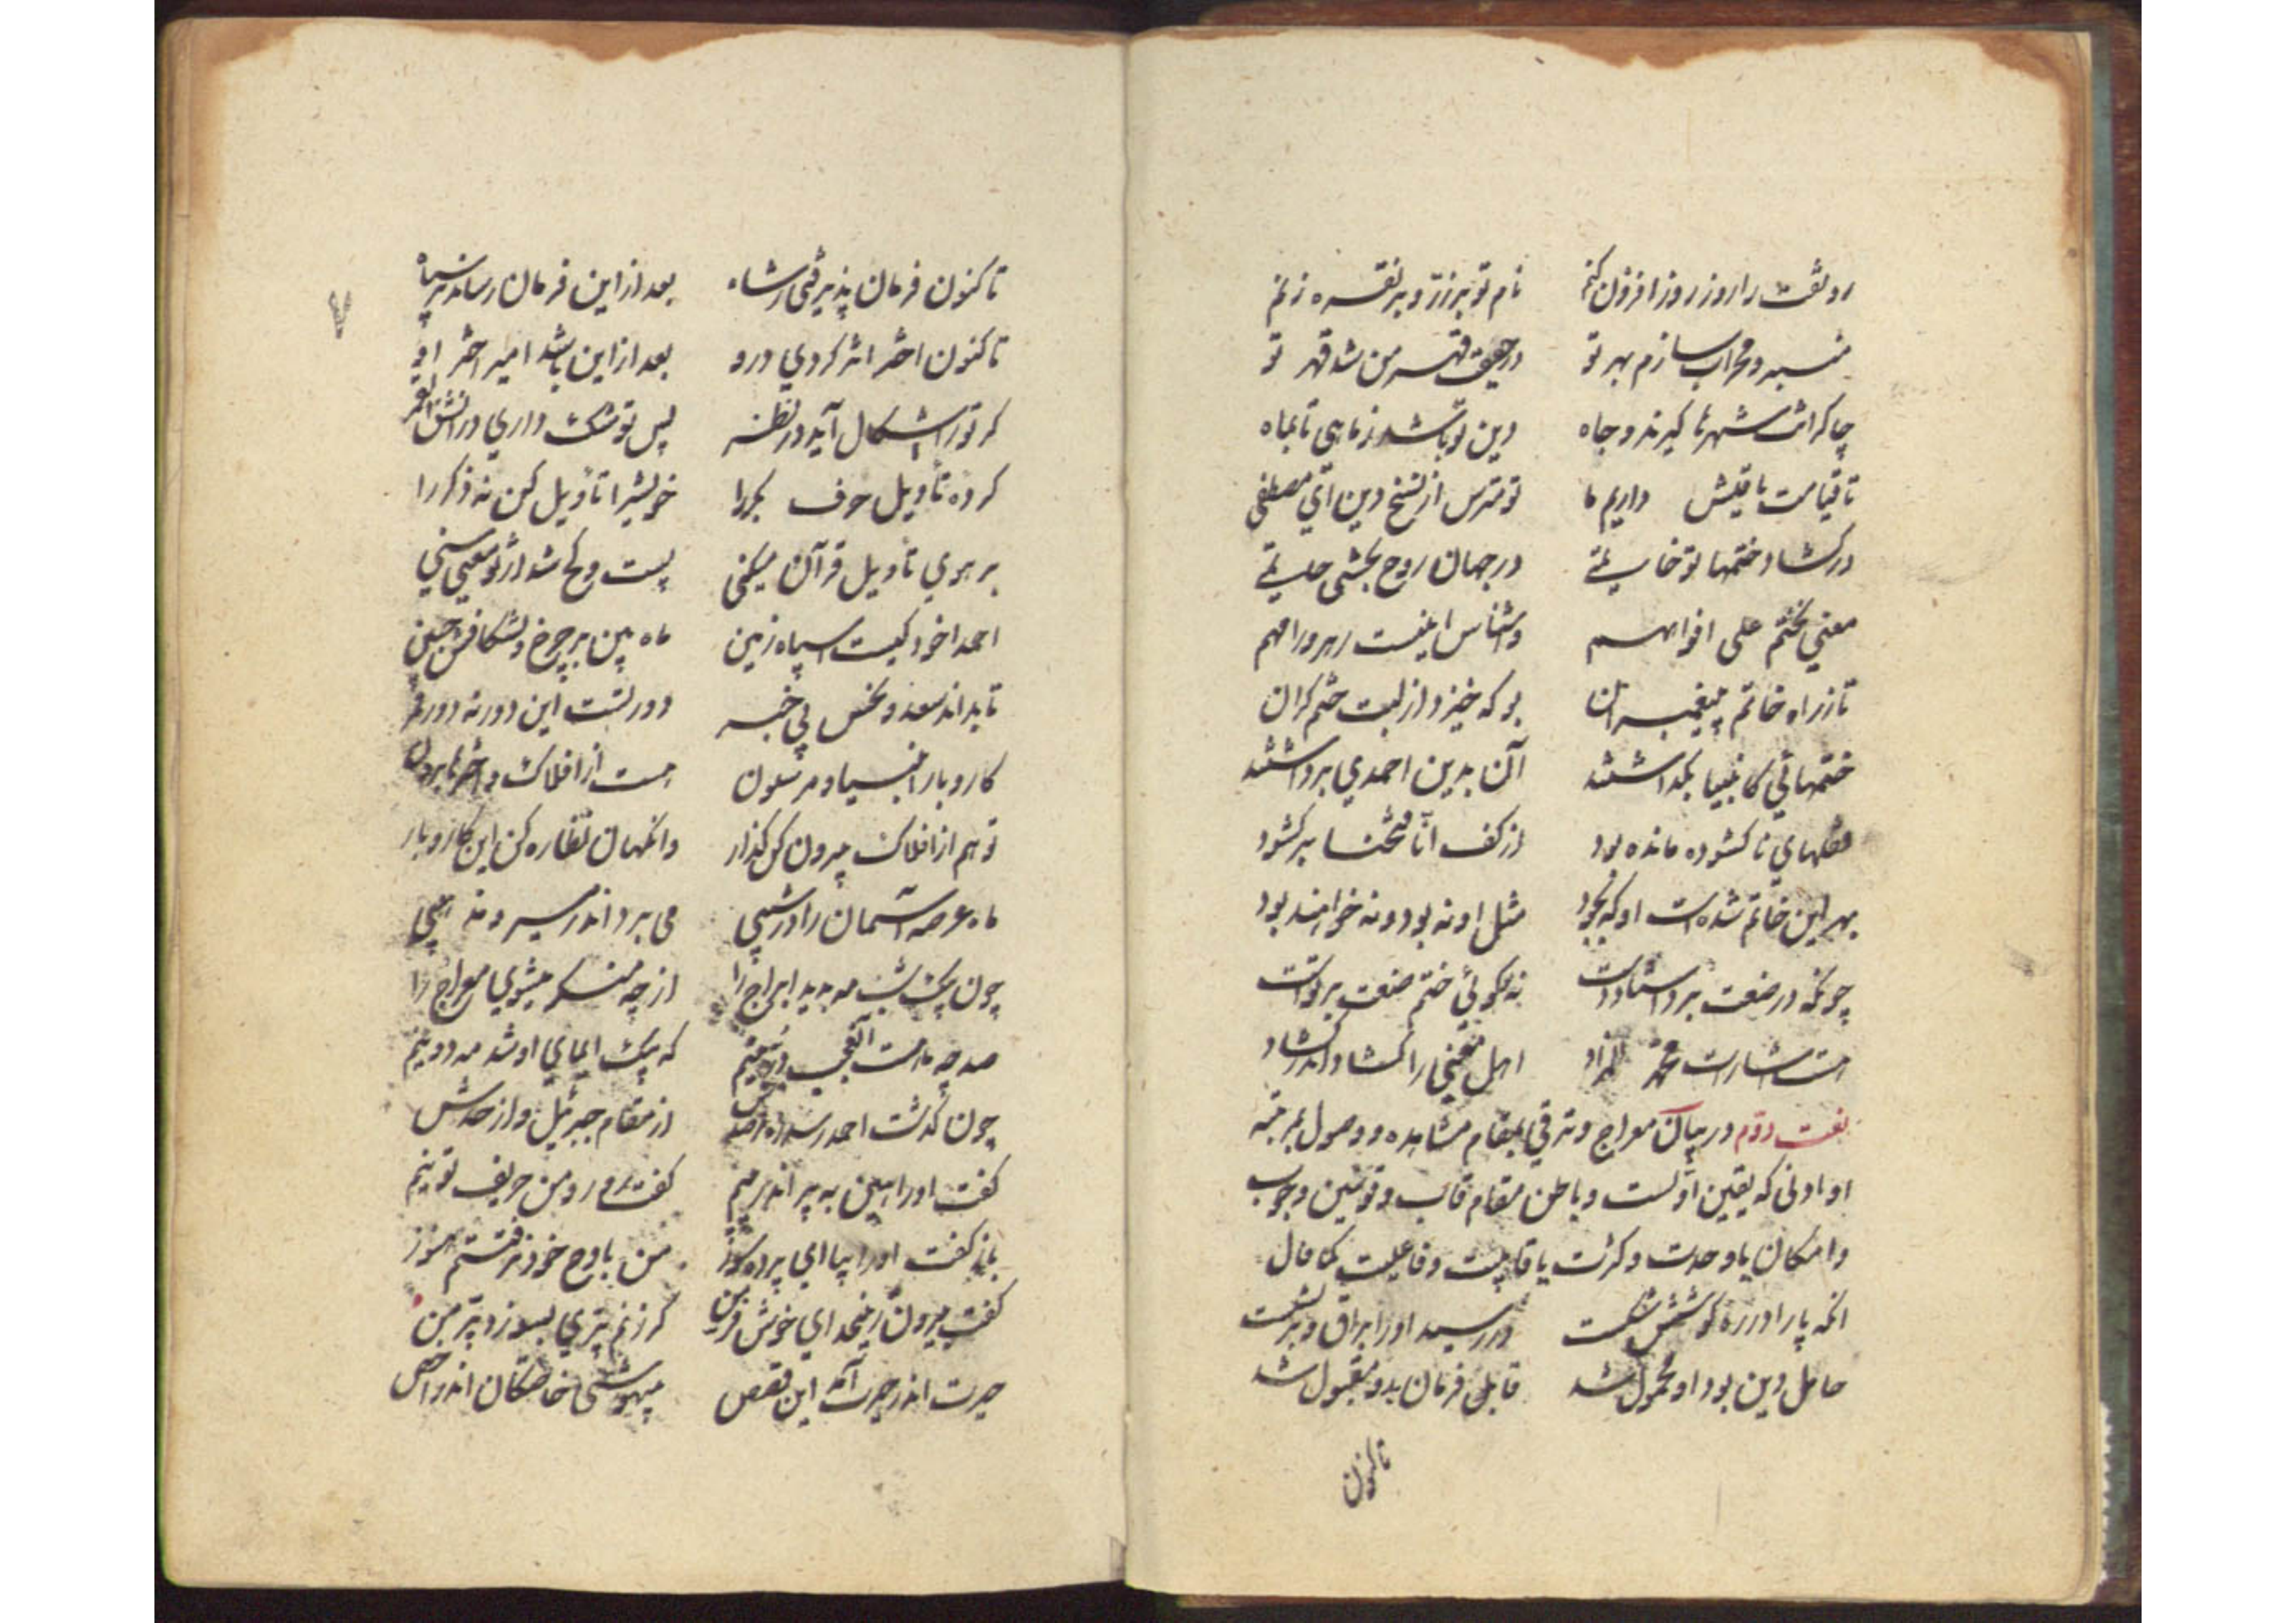 رونقت را روز روز افزون کنم نام تو بر زر و بر نقره زنم
منبر و محراب سازم بهر تو در حقیقت قهر من شد قهر تو
چاکرانت شهرها گیرند و جاه دین تو باشد ز ماهی تا بماه
تا قیامت باقیش داریم ما تو مترس از نسخ دین ای مصطفی
در کشاد ختمها تو خاتمی در جهان روح بخشی حاتمی
معنی نختم علی افواههم واشناس اینست رهرو را مهم
تا ز راه خاتم پیغمبران بو که خیزد از لبت ختم گران
ختمهائی کانبیا بگذاشتند آن بدین احمدی برداشتند
قفلهای ناکشوده مانده بود از کف انا فتحنا برکشود
بهر این خاتم شده است او که بجود مثل او نه بود و نه خواهند بود
چونکه در صنعت برد استاد دست نه تو گوئی ختم صنعت بر تو است
هست اشارات محمد المراد اهل معنی را کشاد اندر کشاد
نعت دوم در بیان معراج و ترقی بمقام مشاهده و وصول بمرتبه
او ادنی که یقین اولست و باطن مقام قاب و قوسین وجوب
و امکان یا وحدت و کثرت یا قابلیت و فاعلیت کما قال
انکه پا را در ره کوشش شکست در رسید او را براق و برنشست
حامل دین بود او محمول شد قابل فرمان بد و مقبول شد
تاکنون
۷
تاکنون فرمان پذیرفتی ز شاه بعد از این فرمان رساند بر سپاه
تاکنون اختر اثر کردی درو بعد از این باشد امیر اختر او
گر ترا اشکال آید در نظر پس تو شک داری در انشق القمر
کرده تأویل حرف بکر را خویش را تأویل کن نه ذکر را
بر هوی تأویل قرآن میکنی پست و کج شد از تو معنی سنی
احمدا خود کیست اسپاه زمین ماه بین بر چرخ و بشکافش جبین
تا بداند سعد و نحس بی خبر دور تست این دور نه دور قمر
کار و بار انبیا و مرسلون هست از افلاک و اخترها برون
تو هم از افلاک بیرون کن گذار وانگهان نظاره کن این کار و بار
ماه عرصه آسمان را در شبی می برد اندر مسیر و مذهبی
چون بیک شب مه برید ابراج را از چه منکر میشوی معراج را
صد چو ماهست العجب در یتیم که بیک ایمای او شد مه دو نیم
چون گذشت احمد ز سدره مرصدش از مقام جبرئیل و از حدش
گفت او را هین بپر اندر پیم گفت رو رو من حریف تو نیم
باز گفت او را بیا ای پرده سوز من باوج خود نرفتستم هنوز
گفت بیرون زین حد ای خوش فر من گر زنم پری بسوزد پر من
حیرت اندر حیرت آمد این قصص بیهوشی خاصگان اندر اخص